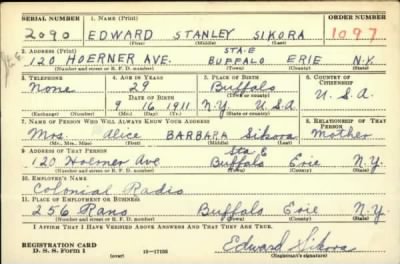 SERIAL NUMBER 1. NAME (Print) ORDER NUMBER
2090 EDWARD STANLEY SIKORA 1097
(First) (Middle) (Last)
2. ADDRESS (Print) STA-E
120 HOERNER AVE. BUFFALO ERIE N.Y.
(Number and street or R. F. D. number) (Town) (County) (State)
3. TELEPHONE 4. AGE IN YEARS 5. PLACE OF BIRTH 6. COUNTRY OF CITIZENSHIP
None 29 Buffalo U.S.A.
DATE OF BIRTH (Town or county)
9 16 1911 N.Y. U.S.A
(Exchange) (Number) (Mo.) (Day) (Yr.) (State or country)
7. NAME OF PERSON WHO WILL ALWAYS KNOW YOUR ADDRESS 8. RELATIONSHIP OF THAT PERSON
Mrs. Alice BARBARA Sikora Mother
(Mr., Mrs., Miss) (First) (Middle) (Last)
9. ADDRESS OF THAT PERSON Sta E
120 Hoerner Ave Buffalo Erie N.Y.
(Number and street or R. F. D. number) (Town) (County) (State)
10. EMPLOYER'S NAME
Colonial Radio
11. PLACE OF EMPLOYMENT OR BUSINESS
256 Rano Buffalo Erie N.Y.
(Number and street or R. F. D. number) (Town) (County) (State)
I AFFIRM THAT I HAVE VERIFIED ABOVE ANSWERS AND THAT THEY ARE TRUE.
REGISTRATION CARD
D. S. S. Form 1 (over) 16-17105 Edward Sikora
(Registrant's signature)